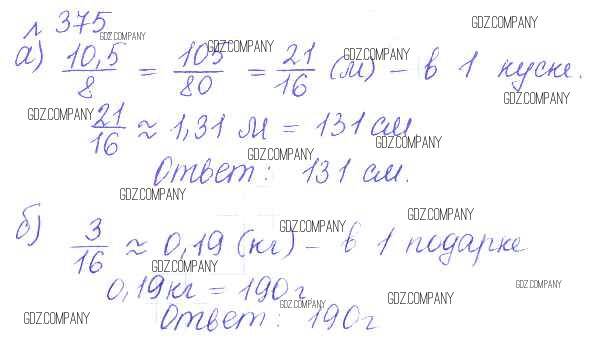 № 375
GDZ.COMPANY GDZ.COMPANY GDZ.COMPANY GDZ.COMPANY
а) 10,5/8 = 105/80 = 21/16 (м) – в 1 куске.
GDZ.COMPANY GDZ.COMPANY
21/16 ≈ 1,31 м = 131 см
GDZ.COMPANY GDZ.COMPANY
Ответ: 131 см.
GDZ.COMPANY GDZ.COMPANY
б) 3/16 ≈ 0,19 (кг) – в 1 подарке
GDZ.COMPANY GDZ.COMPANY
0,19кг = 190г
GDZ.COMPANY GDZ.COMPANY GDZ.COMPANY
Ответ: 190г
GDZ.COMPANY